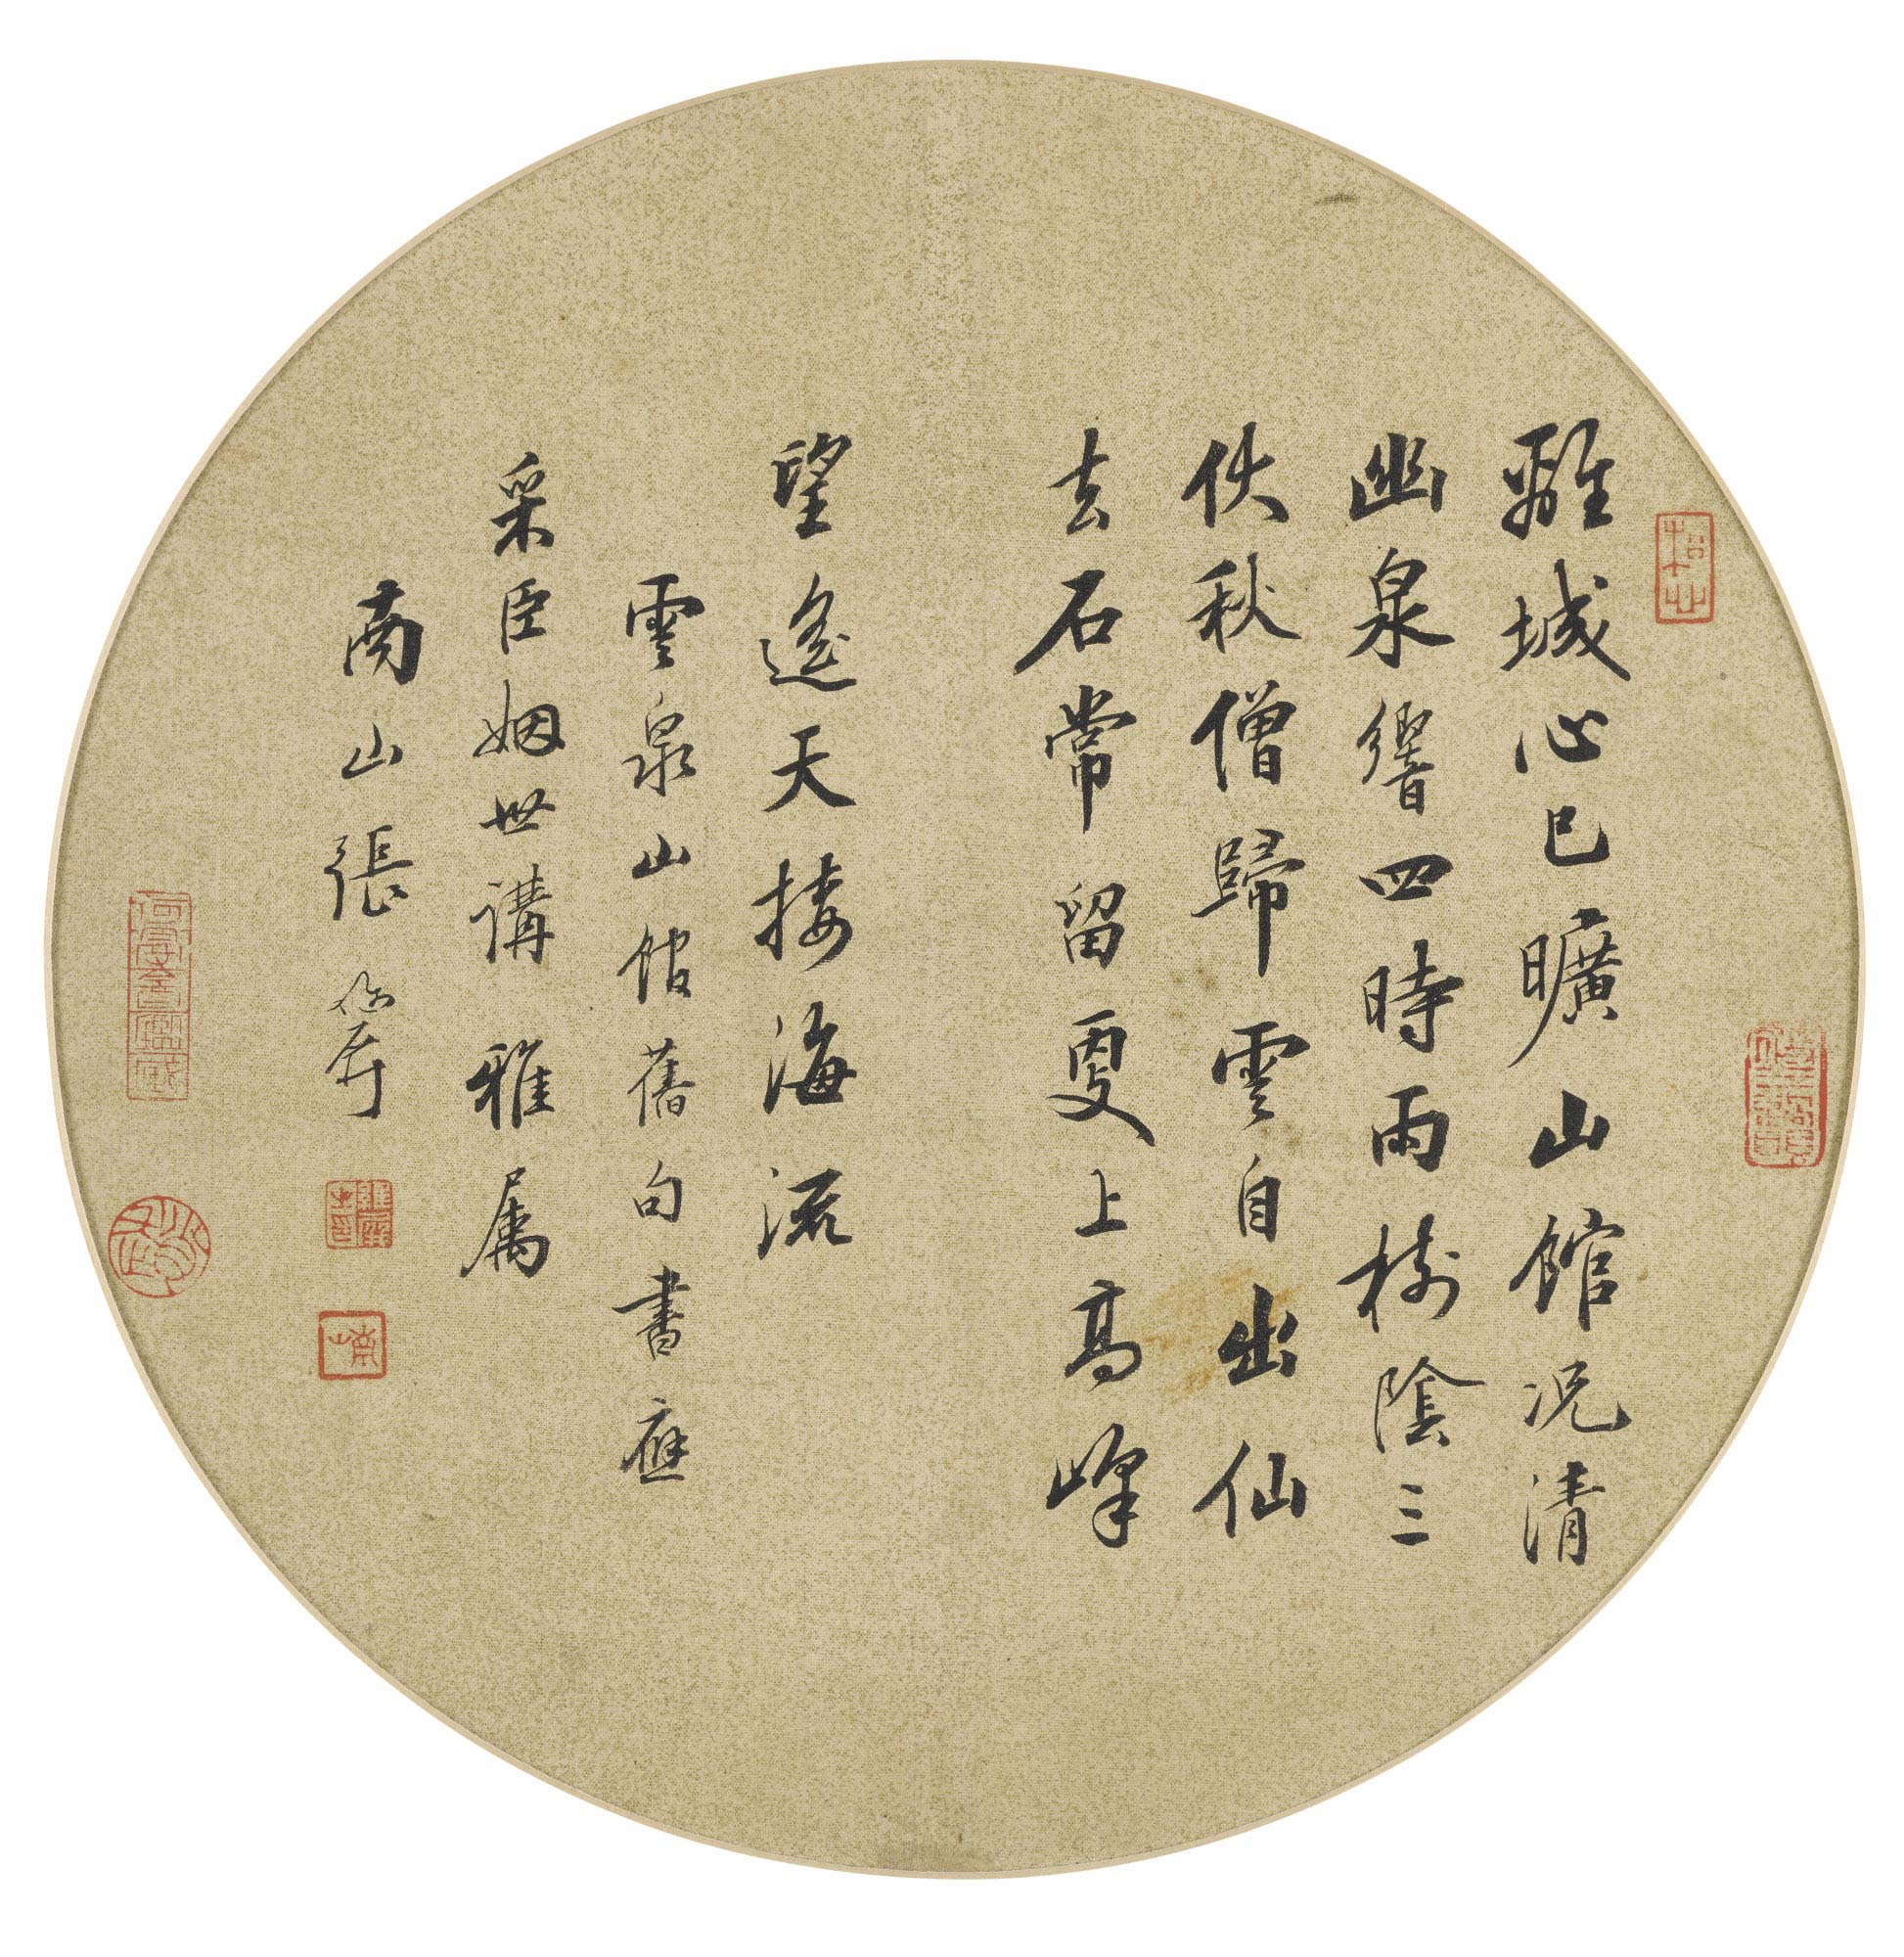 離城心已曠山館況清
幽泉響四時雨樹陰三
伏秋僧歸雲自出仙
去石常留更上高峰
望遙天接海流
雲泉山館舊句書應
采臣姻世講 雅属
南山張維屏
南山